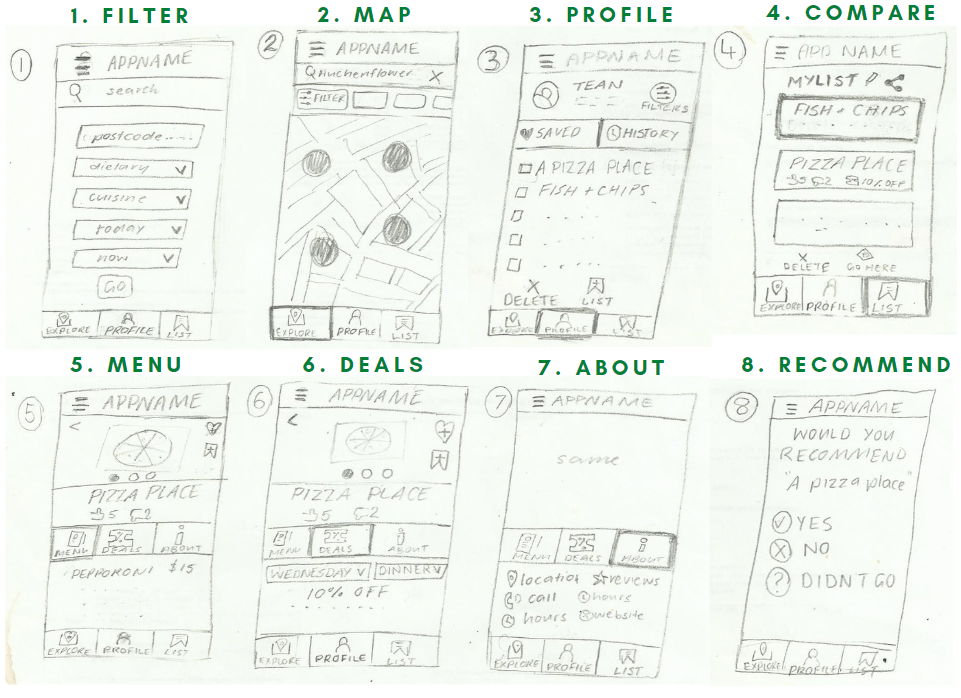 1. FILTER
2. MAP
3. PROFILE
4. COMPARE
1
APPNAME
search
postcode....
dietary
cuisine
today
now
GO
EXPLORE PROFILE LIST
2
APPNAME
Auchenflower X
FILTER
EXPLORE PROFILE LIST
3
APPNAME
TEAN
FILTERS
SAVED HISTORY
A PIZZA PLACE
FISH + CHIPS
X
DELETE LIST
EXPLORE PROFILE LIST
4
APP NAME
MYLIST
FISH + CHIPS
PIZZA PLACE
5 2 10% OFF
X
DELETE GO HERE
EXPLORE PROFILE LIST
5. MENU
6. DEALS
7. ABOUT
8. RECOMMEND
5
APPNAME
<
PIZZA PLACE
5 2
MENU DEALS ABOUT
PEPPORONI $15
EXPLORE PROFILE LIST
6
APPNAME
<
PIZZA PLACE
5 2
MENU DEALS ABOUT
WEDNESDAY DINNER
10% OFF
EXPLORE PROFILE LIST
7
APPNAME
same
MENU DEALS ABOUT
location reviews
call hours
hours website
EXPLORE PROFILE LIST
8
APPNAME
WOULD YOU
RECOMMEND
"A pizza place"
YES
NO
? DIDNT GO
EXPLORE PROFILE LIST